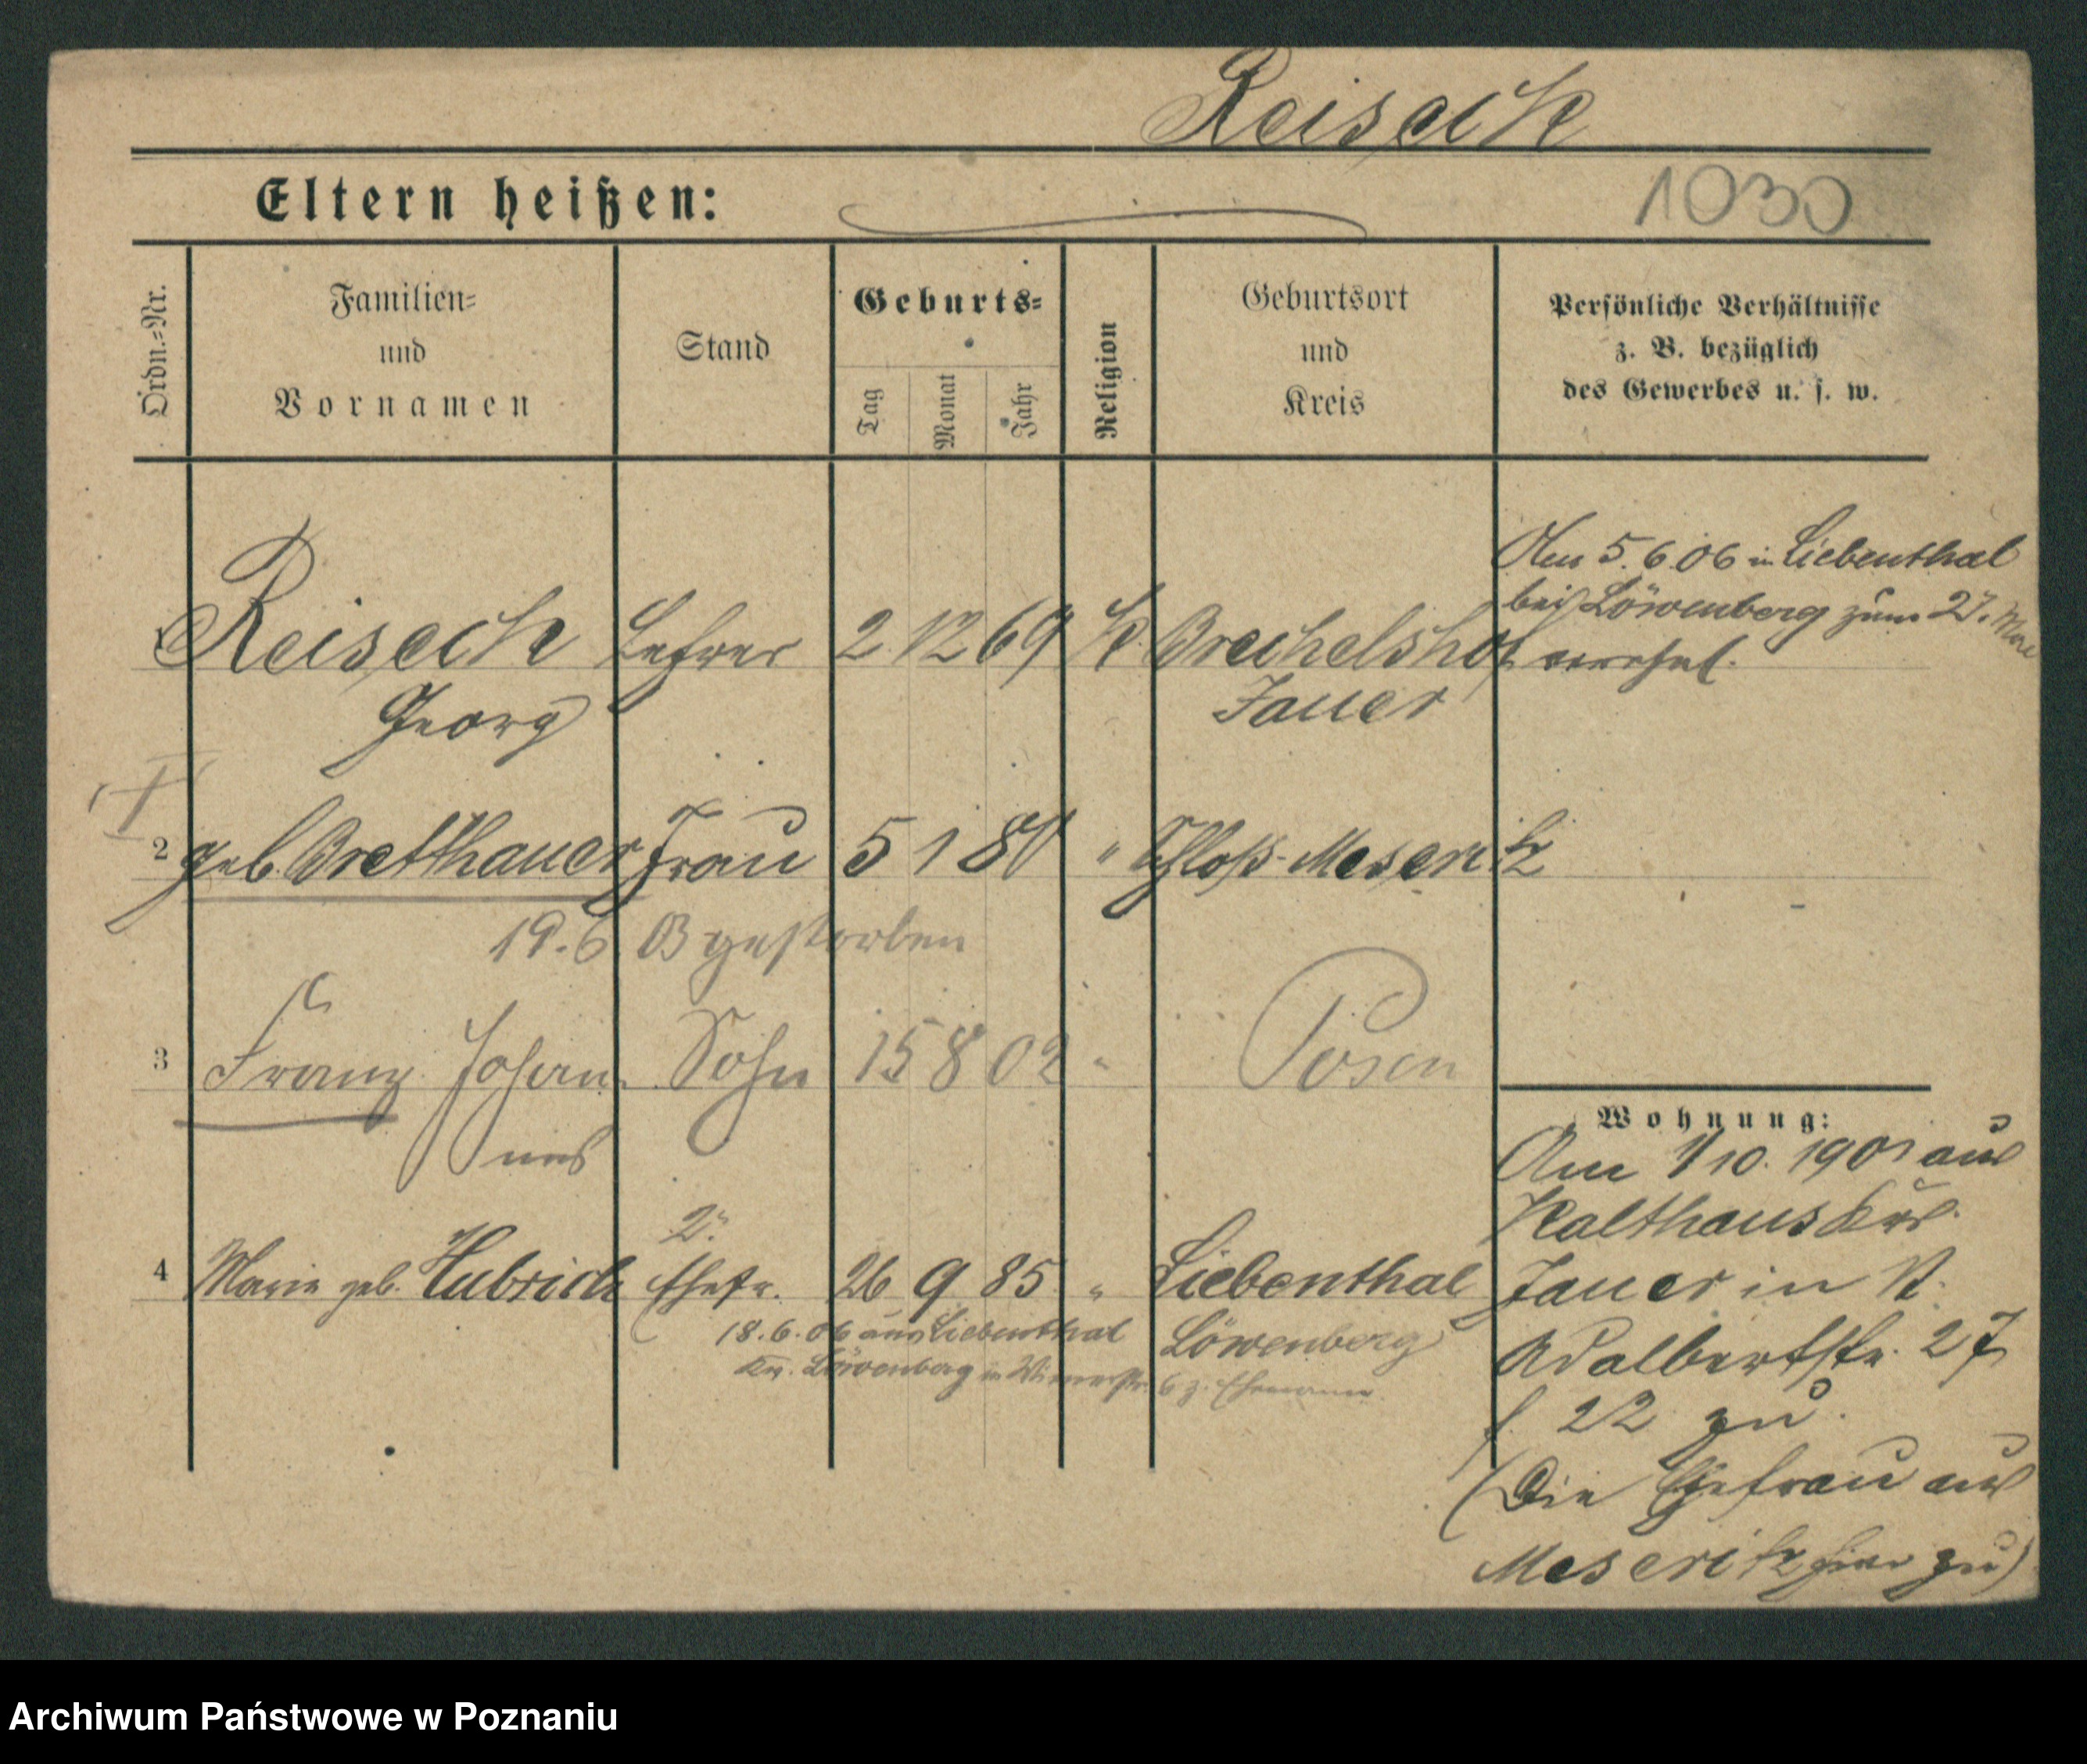 Reiseck
Eltern heißen:
1030
Ordn.-Nr.
Familien-
und
Vornamen
Stand
Geburts-
Tag
Monat
Jahr
Religion
Geburtsort
und
Kreis
Persönliche Verhältnisse
z. B. bezüglich
des Gewerbes u. s. w.
1 Reiseck Lehrer 2. 12 69 K. Brechelshof
Georg Jauer
Am 5.6.06 in Liebenthal
bei Löwenberg zum 2.
2 geb. Bretthauer Frau 5 1 80 " Schloß-Meseritz
19.6.03 gestorben
3 Franz Johan- Sohn 15 8 02 " Posen
nes
2.
4 Marie geb. Hubrich Ehefr. 26 9 85 " Liebenthal
Löwenberg
18.6.06 aus Liebenthal
Kr. Löwenberg in 6 z. Ehemann
Wohnung:
Am 1/10. 1901 aus
Kalthaus Krs.
Jauer in
Adalbertstr. 27
f. 22 zu.
(Die Ehefrau aus
Meseritz hier zu)
Archiwum Państwowe w Poznaniu